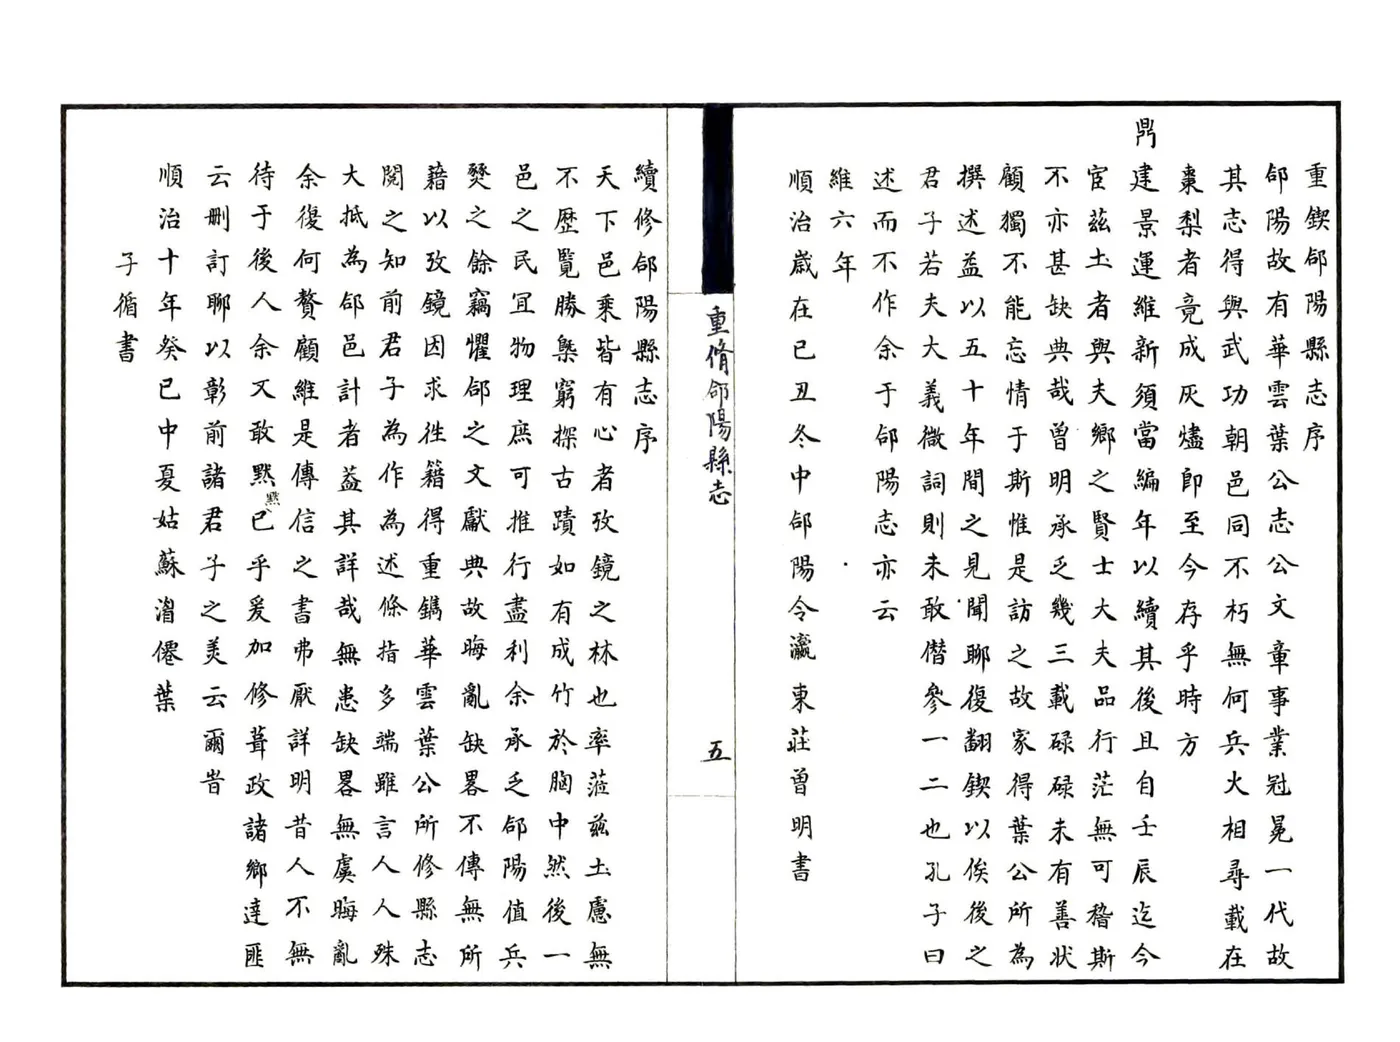 重鍥郃陽縣志序
郃陽故有華雲葉公志公文章事業冠冕一代故
其志得與武功朝邑同不朽無何兵火相尋載在
棗梨者竟成灰燼即至今存乎時方
鼎建景運維新須當編年以續其後且自壬辰迄今
宦茲土者與夫鄉之賢士大夫品行茫無可稽斯
不亦甚缺典哉曾明承乏幾三載碌碌未有善狀
顧獨不能忘情于斯惟是訪之故家得葉公所為
撰述益以五十年間之見聞聊復翻鍥以俟後之
君子若夫大義微詞則未敢僭參一二也孔子曰
述而不作余于郃陽志亦云
維六年
順治歲在已丑冬中郃陽令瀛東莊曾明書
重脩郃陽縣志
五
續修郃陽縣志序
天下邑乘皆有心者攷鏡之林也率蒞茲土慮無
不歷覽勝槩窮探古蹟如有成竹於胸中然後一
邑之民冝物理庶可推行盡利余承乏郃陽值兵
燹之餘竊懼郃之文獻典故晦亂缺畧不傳無所
藉以攷鏡因求徃籍得重鐫華雲葉公所修縣志
閱之知前君子為作為述條指多端雖言人人殊
大抵為郃邑計者益其詳哉無患缺畧無虞晦亂
余復何贅顧維是傳信之書弗厭詳明昔人不無
待于後人余又敢黙黙已乎爰加修葺政諸鄉達匪
云刪訂聊以彰前諸君子之美云爾旹
順治十年癸巳中夏姑蘇淯僊葉
子循書